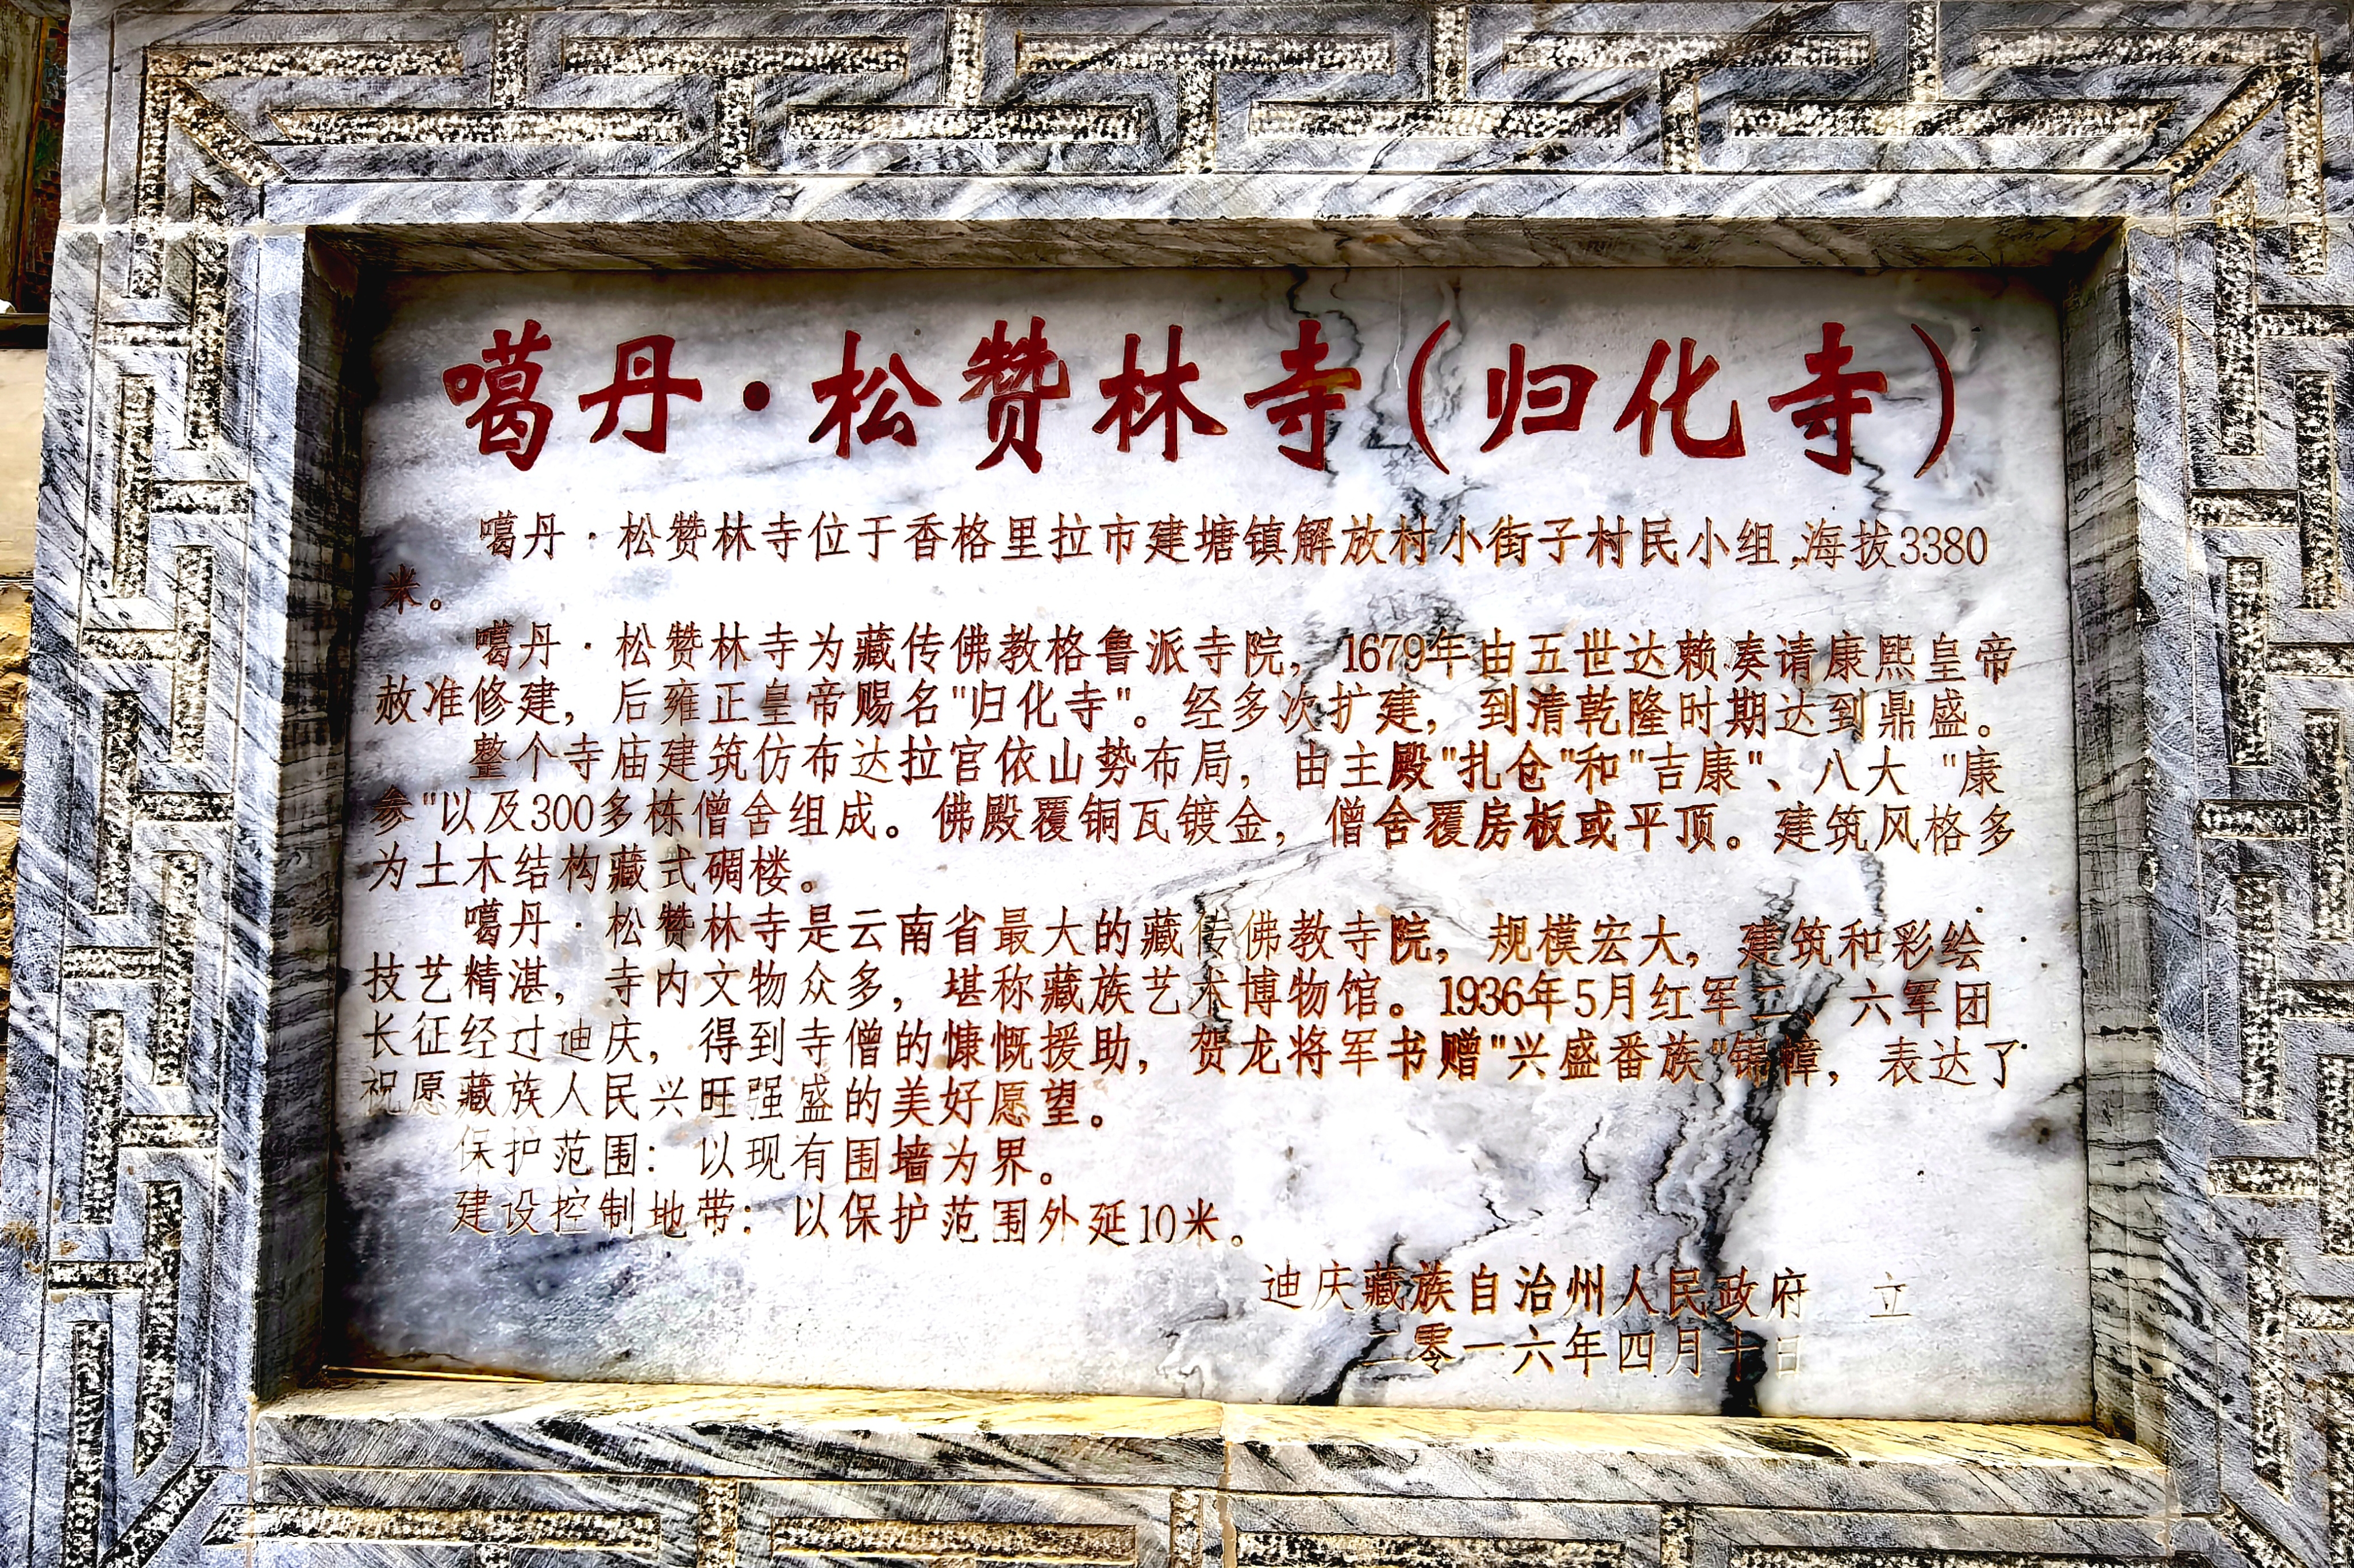 噶丹·松赞林寺(归化寺)
噶丹·松赞林寺位于香格里拉市建塘镇解放村小街子村民小组,海拔3380
米。
噶丹·松赞林寺为藏传佛教格鲁派寺院，1679年由五世达赖奏请康熙皇帝
赦准修建，后雍正皇帝赐名"归化寺"。经多次扩建，到清乾隆时期达到鼎盛。
整个寺庙建筑仿布达拉宫依山势布局，由主殿"扎仓"和"吉康"、八大 "康
参"以及300多栋僧舍组成。佛殿覆铜瓦镀金，僧舍覆房板或平顶。建筑风格多
为土木结构藏式碉楼。
噶丹·松赞林寺是云南省最大的藏传佛教寺院，规模宏大，建筑和彩绘
技艺精湛，寺内文物众多，堪称藏族艺术博物馆。1936年5月红军二、六军团
长征经过迪庆，得到寺僧的慷慨援助，贺龙将军书赠"兴盛番族"锦幛，表达了
祝愿藏族人民兴旺强盛的美好愿望。
保护范围：以现有围墙为界。
建设控制地带：以保护范围外延10米。
迪庆藏族自治州人民政府 立
二零一六年四月十日